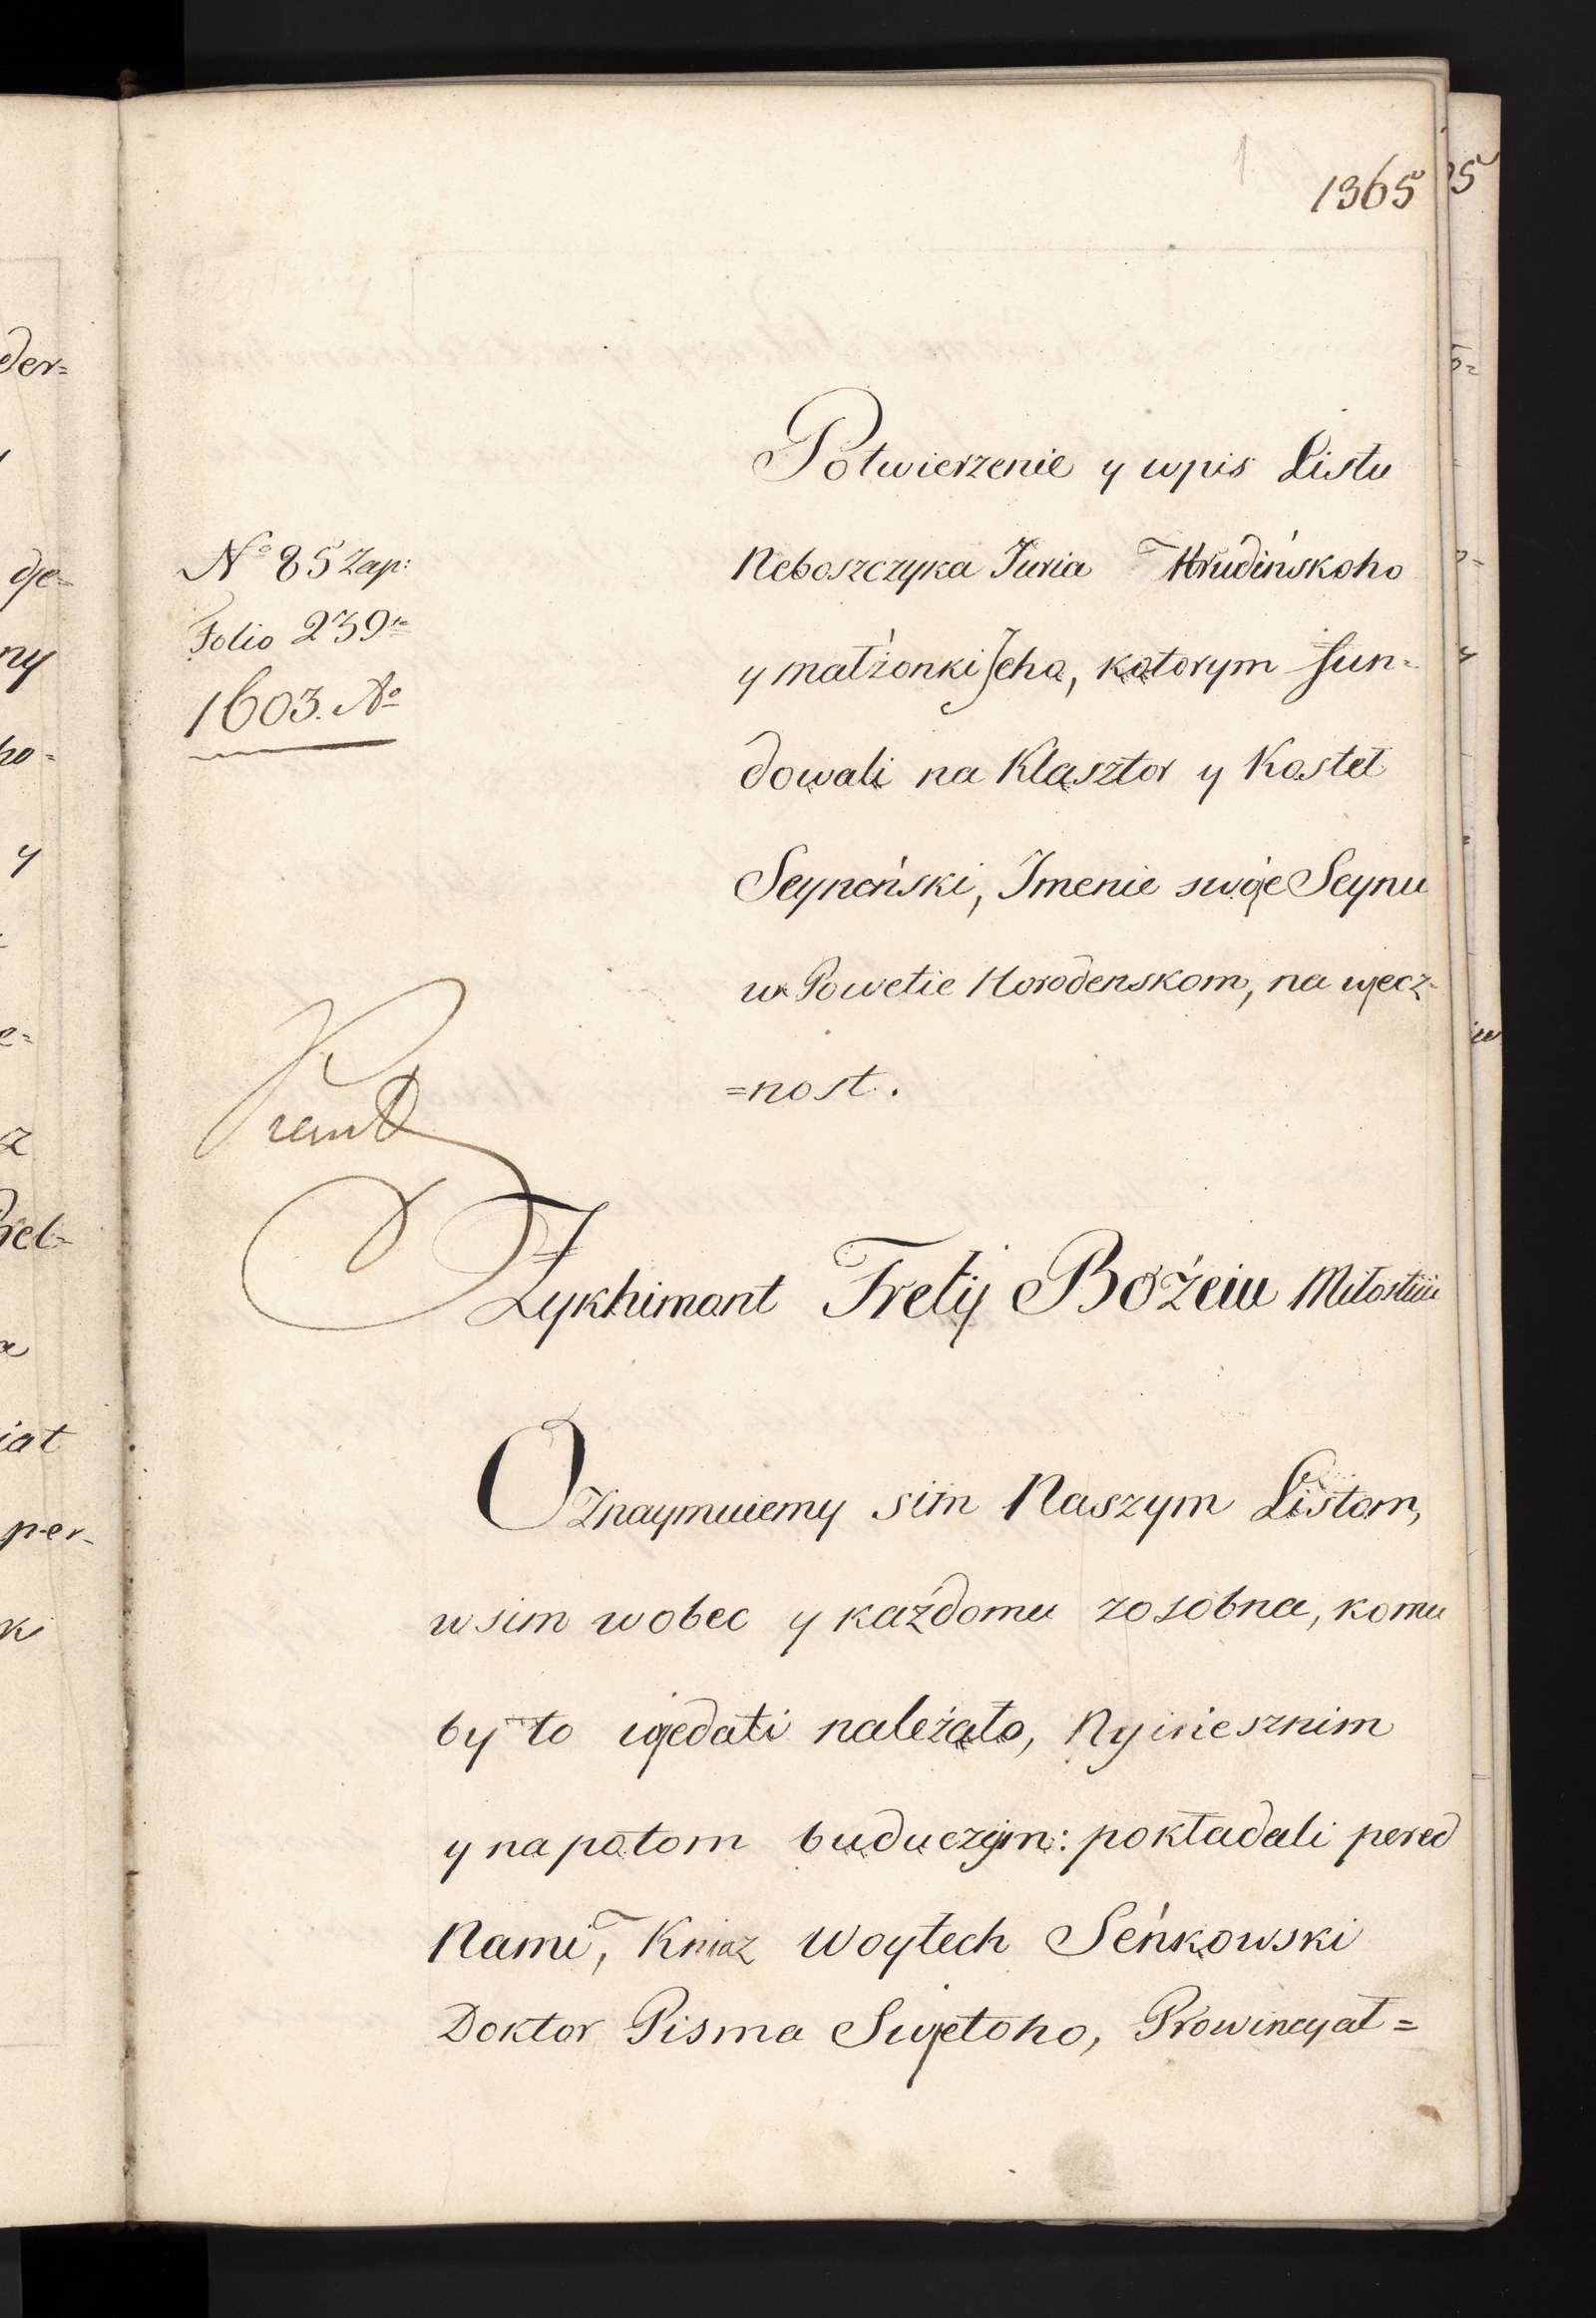 1
1365
Potwierzenie y wpis Listu
Neboszczyka Juria Hrudińskoho
y małżonki Jeho, kotorym fun-
dowali na Klasztor y Kosteł
Seyneński, Jmenie swoje Seynu
w Powetie Horodenskom, na wjecz-
=nost.
No 85 Zap:
Folio 239
1603. Ao
Zykhimont Tretij Bożeiu Miłostiu
Oznaymuiemy sim Naszym Listom,
wsim wobec y każdomu zosobna, komu
by to wjedati należało, Nyniesznim
y na potom buduczym: pokładali pered
Nami, Kniaz Woytech Seńkowski
Doktor Pisma Swjetoho, Prowincyał=
der=
dje=
ny
ho=
y
e=
z
rel=
a
iat
per-
ki